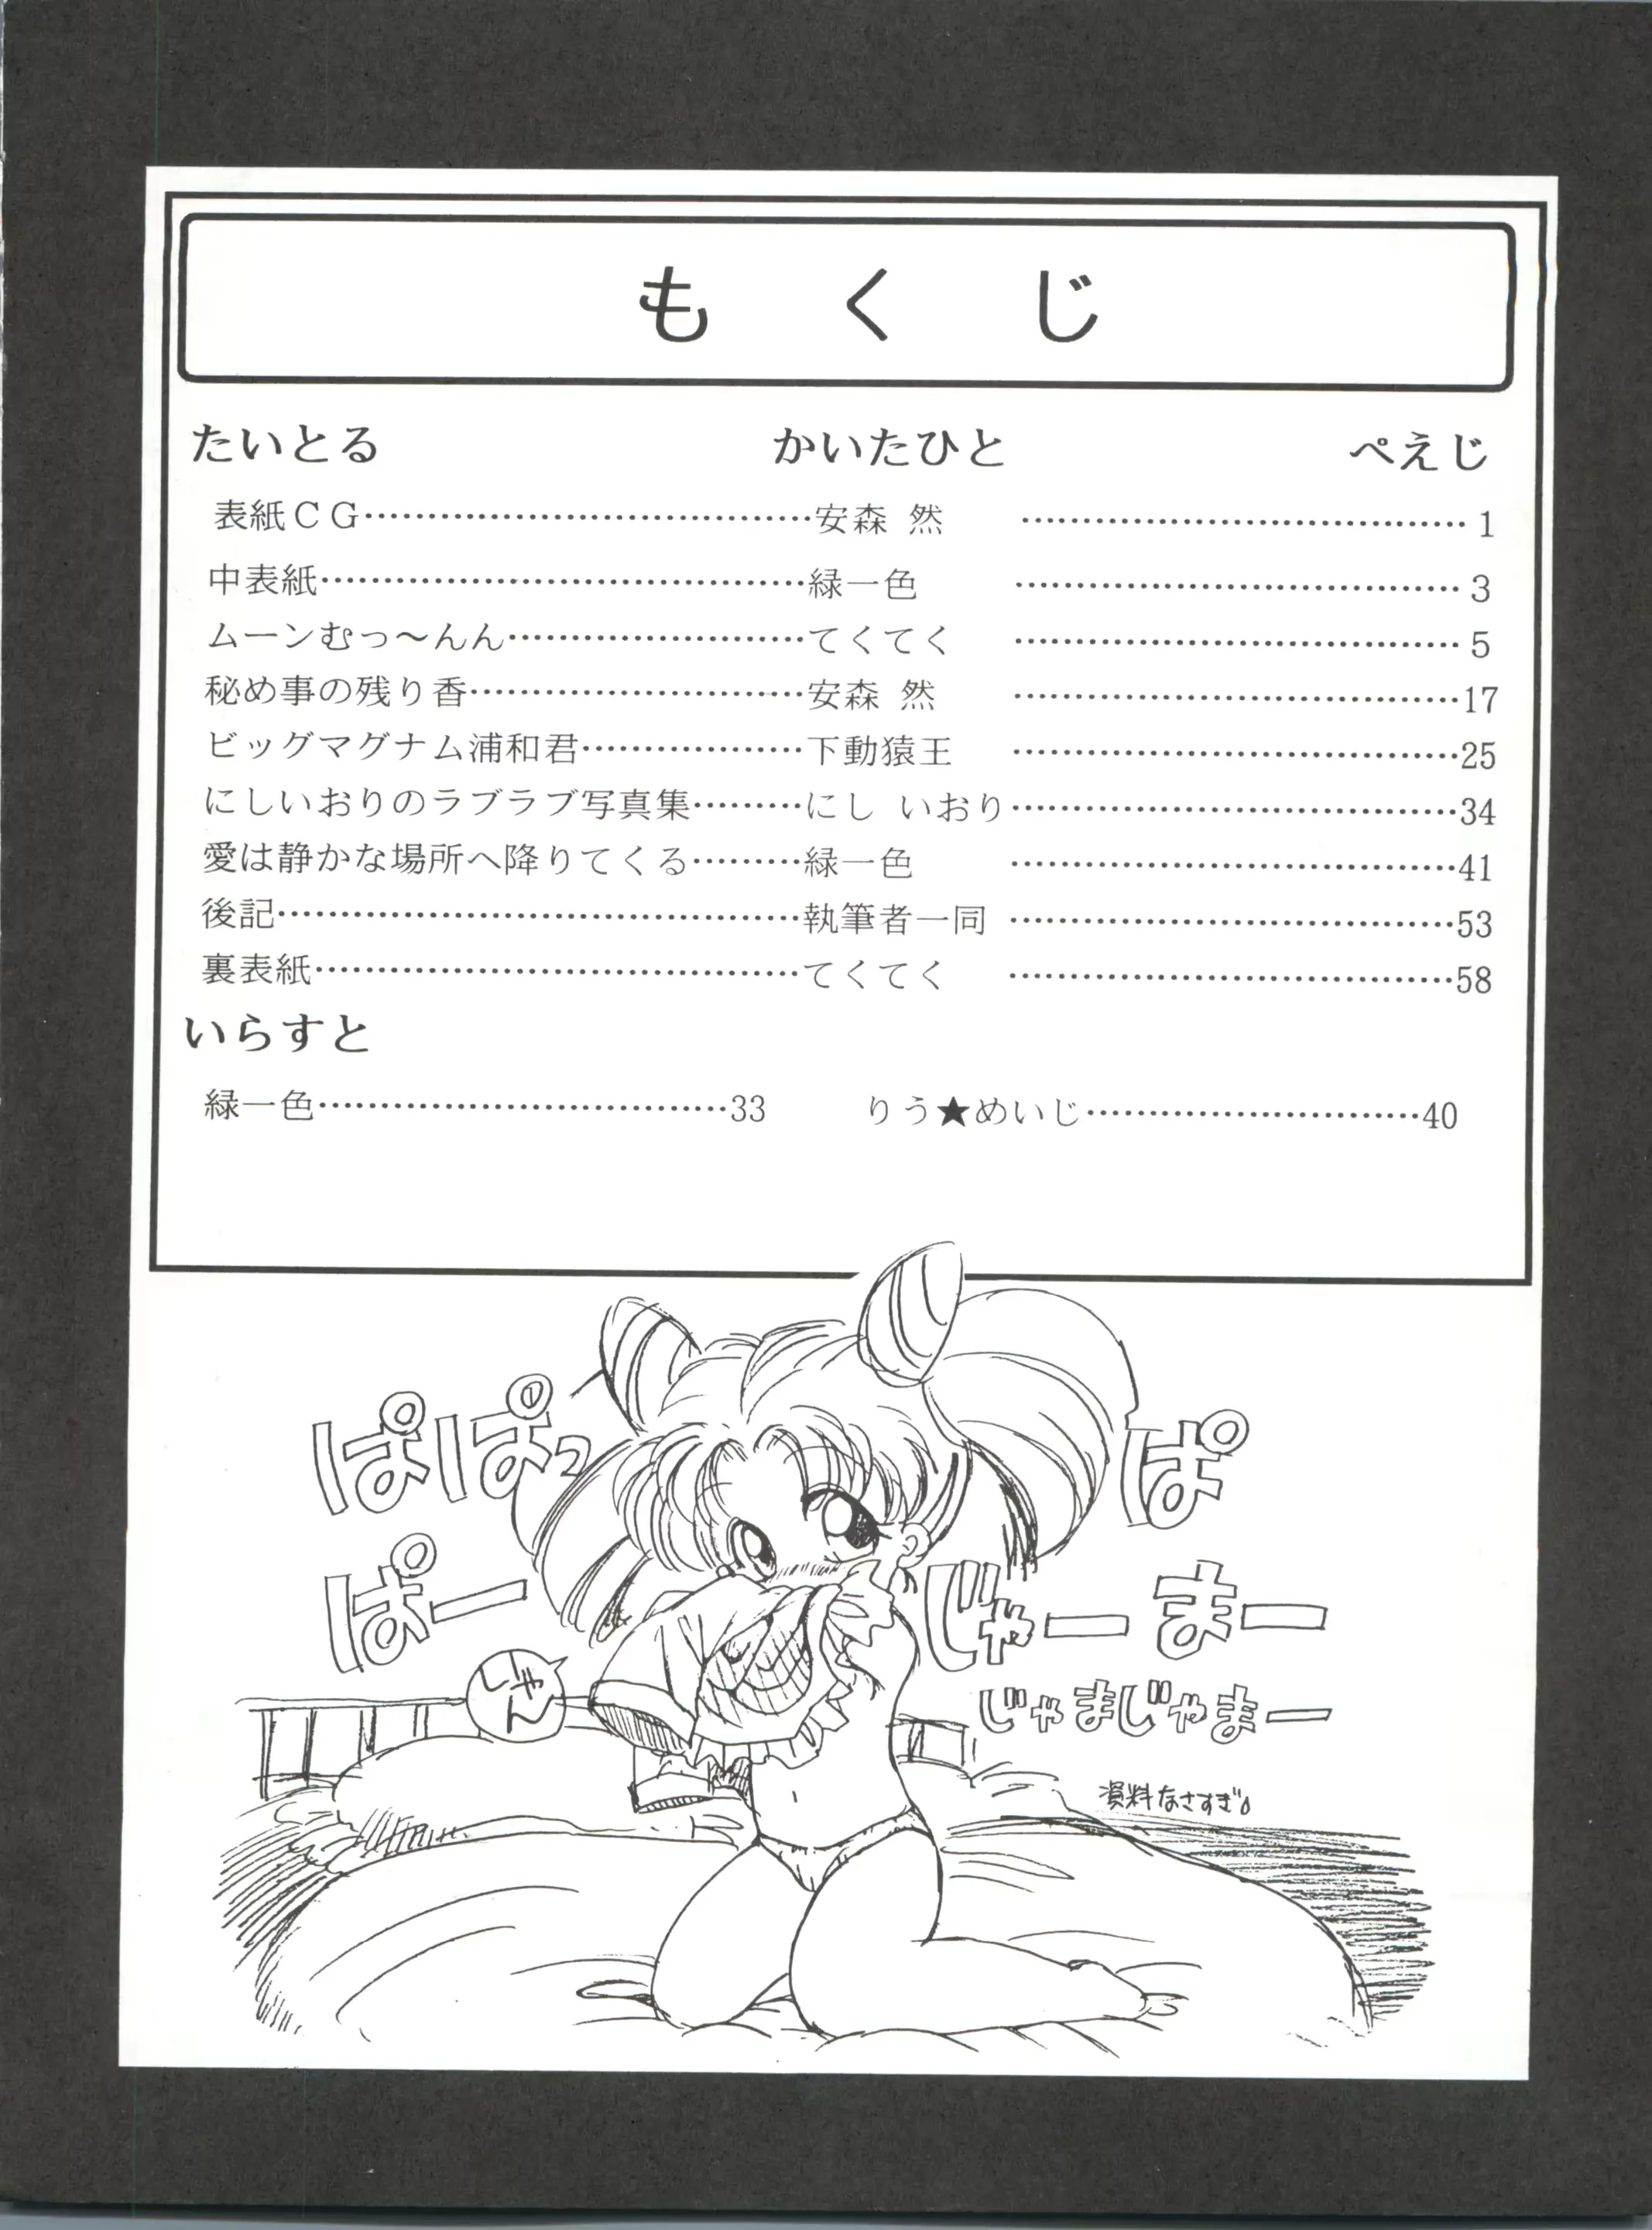 もくじ
たいとる かいたひと ぺえじ
表紙ＣＧ……………………………………安森 然 ……………………………………1
中表紙……………………………………緑一色 ……………………………………3
ムーンむっ～んん………………………てくてく ……………………………………5
秘め事の残り香…………………………安森 然 ……………………………………17
ビッグマグナム浦和君…………………下動猿王 ……………………………………25
にしいおりのラブラブ写真集………にし いおり……………………………………34
愛は静かな場所へ降りてくる………緑一色 ……………………………………41
後記………………………………………執筆者一同 ……………………………………53
裏表紙……………………………………てくてく ……………………………………58
いらすと
緑一色………………………………33 りう★めいじ…………………………40
ぱぱっ
ぱー
ぱ
じゃーまー
じゃまじゃまー
しゃん
資料なさすぎ